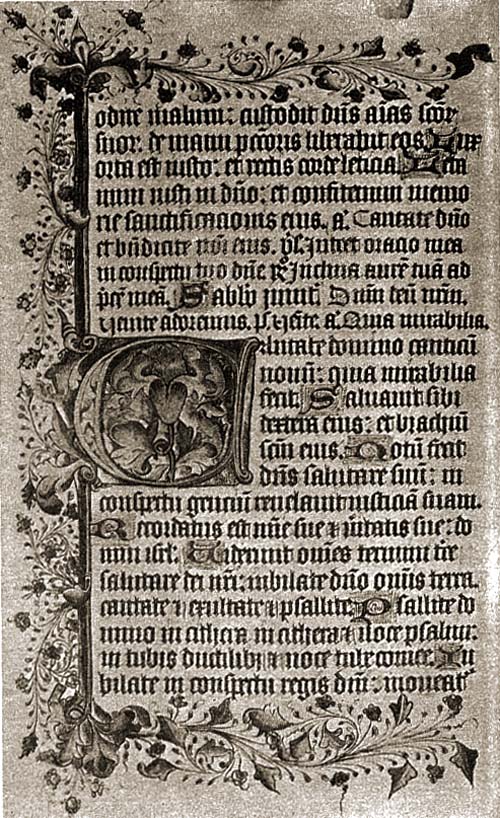 odite malum: custodit dñs aias scõꝝ
suoꝝ: de manu pctoris liberabit eos. Lux
orta est iusto: et rectis corde leticia. Leta
mini iusti in dño: et confitemini memo
rie sanctificacionis eius. a'. Cantate dño
et bñdicite noi eius. ps. Intret oracio mea
in conspectu tuo dñe R' Inclina aurẽ tuã ad
pce meã. Sabbo Dum deũ nrm.
venite adoremus. ps. Venite. a'. Quia mirabilia.
Cantate domino canticũ
nouũ: quia mirabilia
fecit. Saluauit sibi
dextera eius: et brachiũ
scm eius. Notũ fecit
dñs salutare suũ: in
conspectu gentiũ reuelauit iusticiã suam.
Recordatus est mie sue ⁊ uitatis sue: do
mui isrl. Viderunt omnes termini tre
salutare dei nri: iubilate dño omnis terra.
cantate ⁊ exultate ⁊ psallite. Psallite do
mino in cithara in cithara ⁊ uoce psalmi:
in tubis ductilibz ⁊ uoce tube cornee. Iu
bilate in conspectu regis dni: moueat